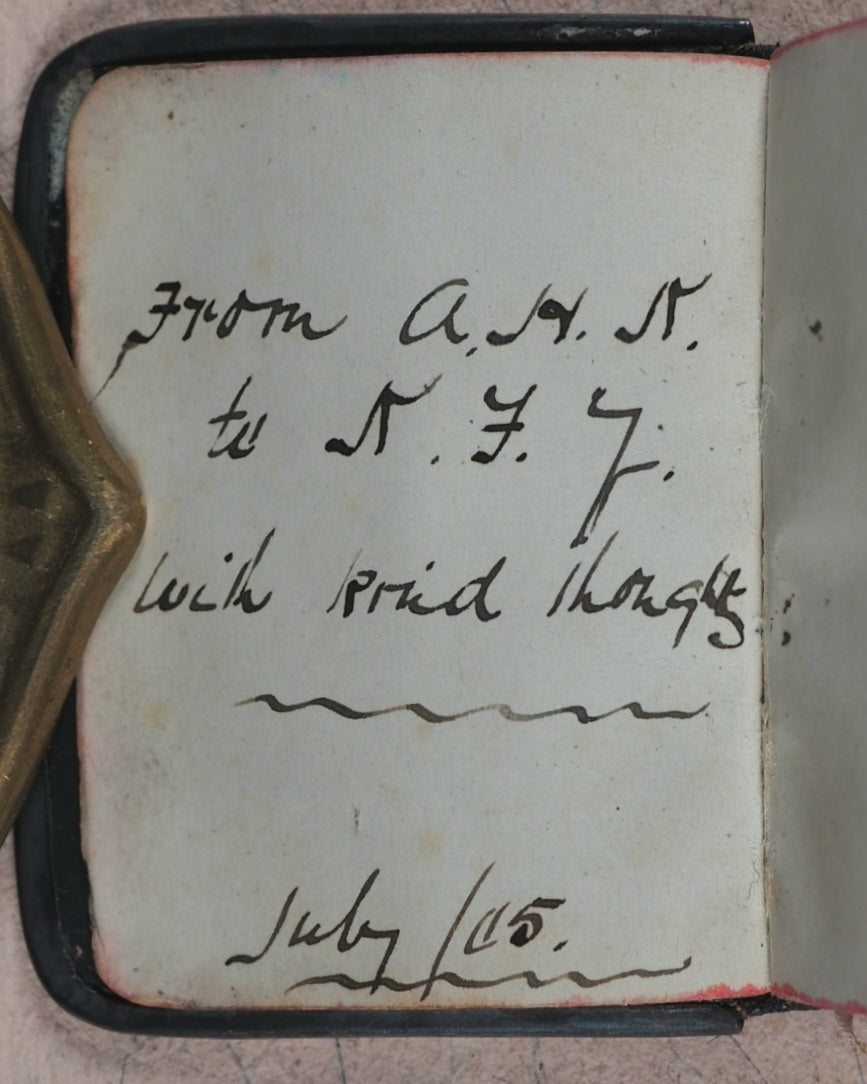 From A. H. N.
to N. F. Y.
with kind thoughts:
July /05.